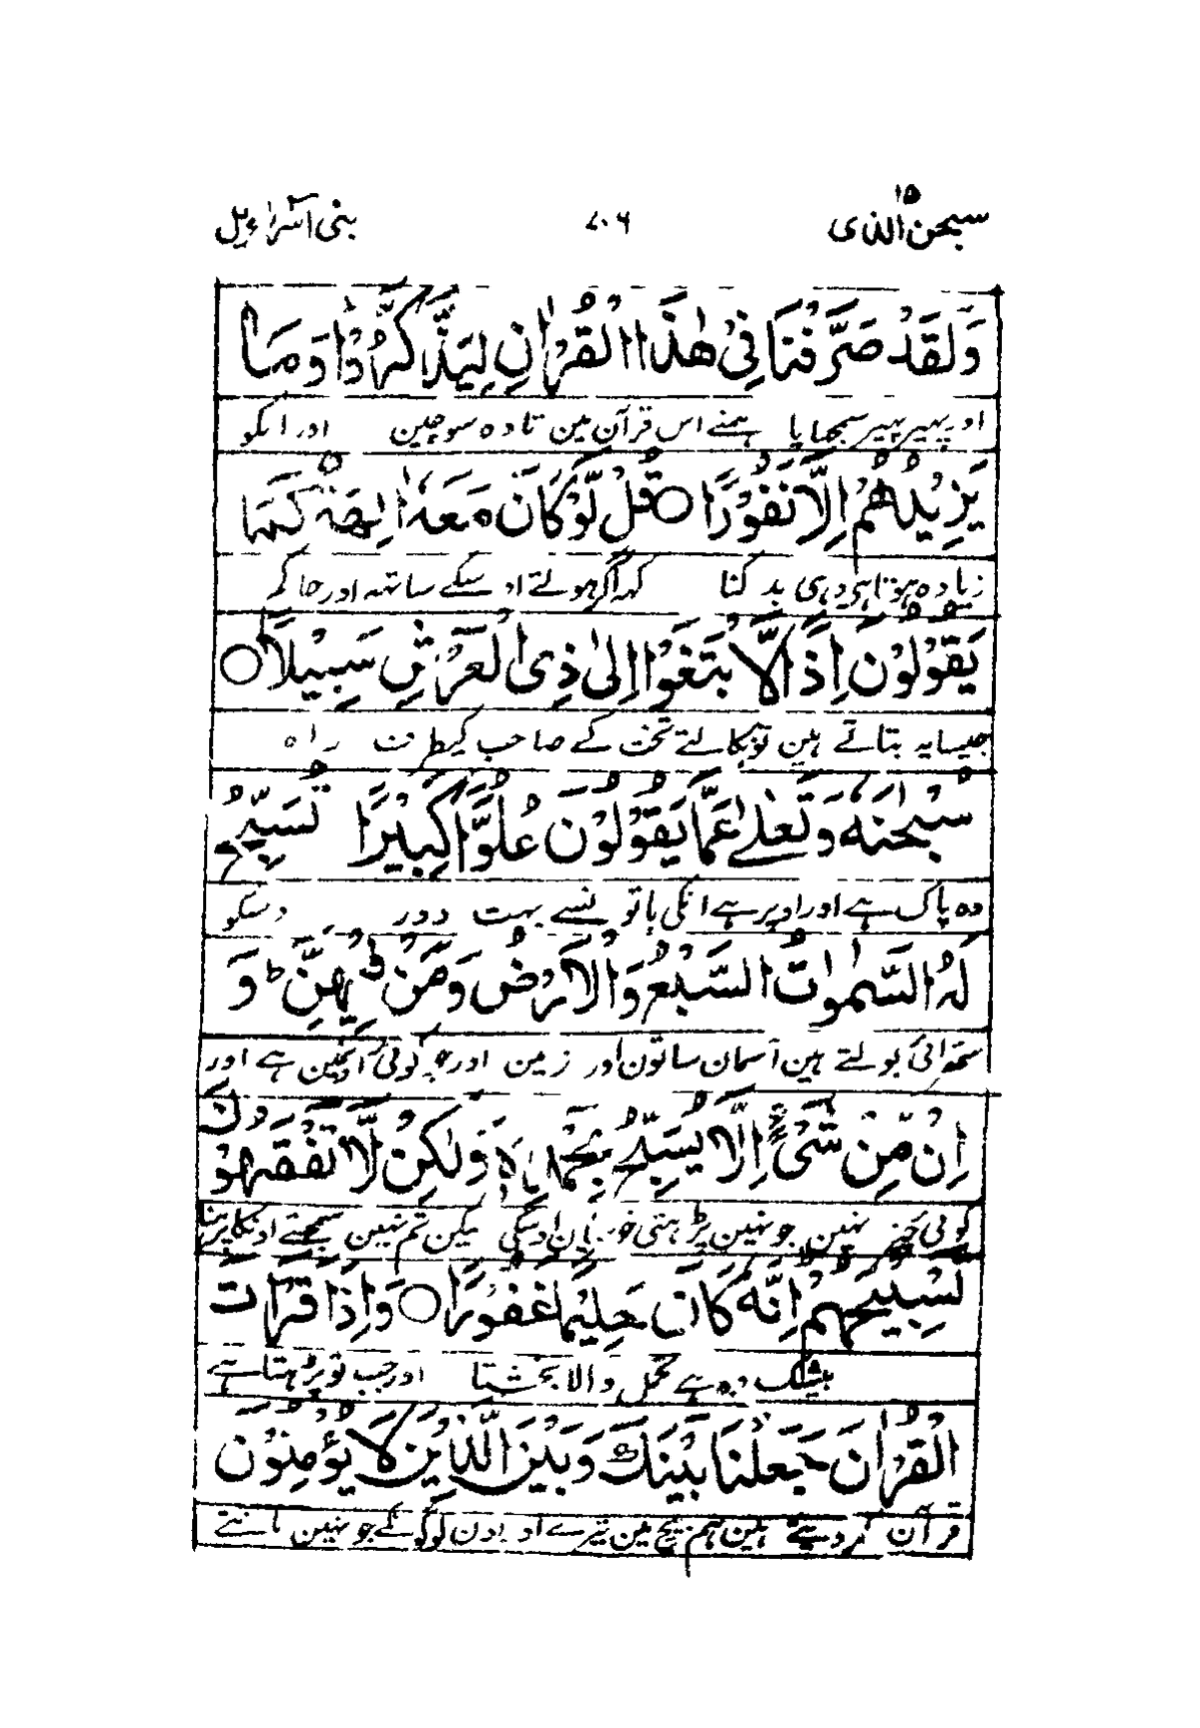 سبحن الذی ۱۵
۷۰۶
بنی اسراءیل
وَلَقَدْ صَرَّفْنَا فِیْ هٰذَا الْقُرْاٰنِ لِیَذَّكَّرُوْا وَمَا
اور پہیر پہیر سمجھایا ہمنے اس قرآن مین تا وہ سوچین اور انکو
یَزِیْدُهُمْ اِلَّا نُفُوْرًا ○ قُلْ لَّوْ كَانَ مَعَهٗ اٰلِهَةٌ كَمَا
زیادہ ہوتا ہی وہی بدکنا کہہ اگر ہوتے اوسکے ساتهہ اور حاکم
یَقُوْلُوْنَ اِذًا لَّابْتَغَوْا اِلٰی ذِی الْعَرْشِ سَبِیْلًا ○
جیسا یہ بتاتے ہین تو نکالتے تخت کے صاحب کیطرف راہ
سُبْحٰنَهٗ وَتَعٰلٰے عَمَّا یَقُوْلُوْنَ عُلُوًّا كَبِیْرًا تُسَبِّحُ
وہ پاک ہے اور اوپر ہے انکی باتونسے بہت دور اوسکو
لَهُ السَّمٰوٰتُ السَّبْعُ وَالْاَرْضُ وَمَنْ فِیْهِنَّ ؕ وَ
ستھرائی بولتے ہین آسمان ساتون اور زمین اور جو کوئی اونمین ہے اور
اِنْ مِّنْ شَیْءٍ اِلَّا یُسَبِّحُ بِحَمْدِهٖ وَلٰكِنْ لَّا تَفْقَهُوْنَ
کوئی چیز نہین جو نہین پڑہتی خوبیان اوسکی لیکن تم نہین سمجھتے اونکا پڑہنا
تَسْبِیْحَهُمْ اِنَّهٗ كَانَ حَلِیْمًا غَفُوْرًا ○ وَاِذَا قَرَاْتَ
بیشک وہ ہے تحمل والا بخشتا اور جب تو پڑہتا ہے
الْقُرْاٰنَ جَعَلْنَا بَیْنَكَ وَبَیْنَ الَّذِیْنَ لَا یُؤْمِنُوْنَ
قرآن کر دیتے ہین ہم بیچ مین تیرے اور اون لوگونکے جو نہین مانتے